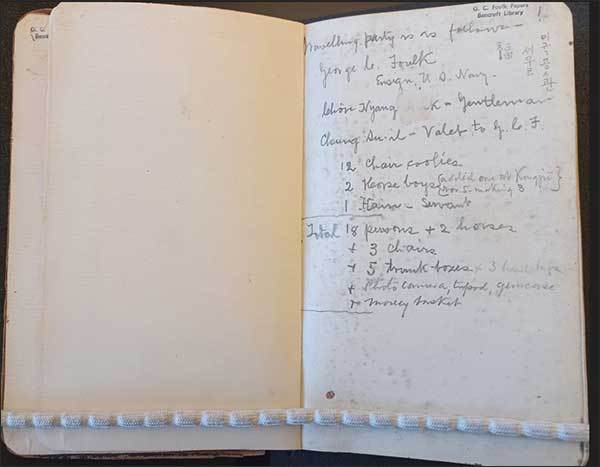 G. C. Foulk Papers
Bancroft Library
미국공사관
Travelling party is as follows—
George C. Foulk
Ensign, U. S. Navy.
Gentleman
Su-il — Valet to G. C. F.
12 Chair coolies
2 Horse boys {added one at Kongju
Nov. 5. making 3}
1 Servant
Total 18 persons + 2 horses
+ 3 chairs
+ 5 trunk-boxes + 3
+ Photo camera, tripod, guncase
+ money basket